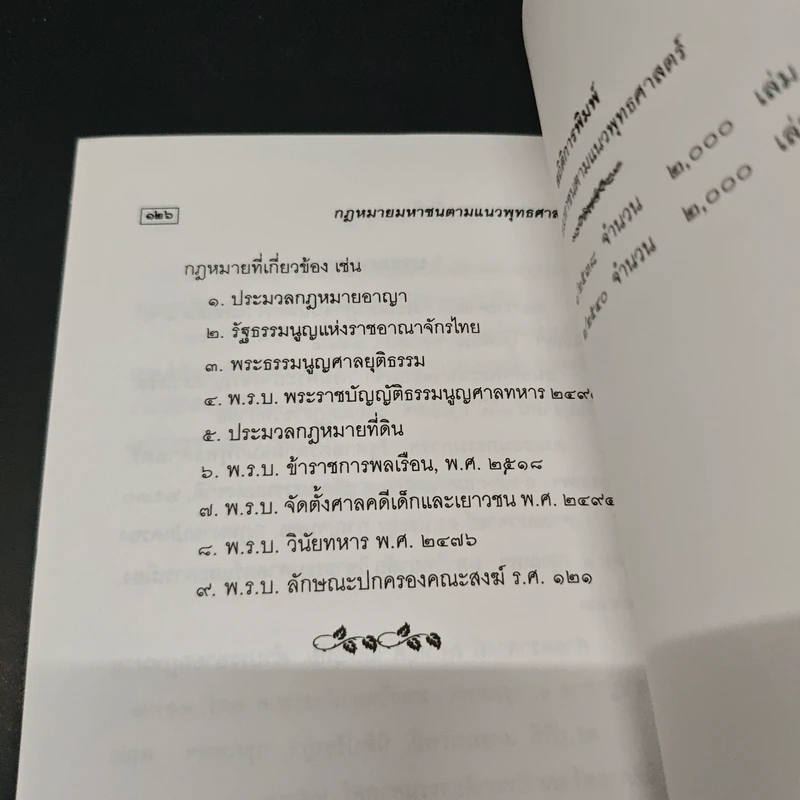 ๑๒๖
กฎหมายมหาชนตามแนวพุทธศาส
กฎหมายที่เกี่ยวข้อง เช่น
๑. ประมวลกฎหมายอาญา
๒. รัฐธรรมนูญแห่งราชอาณาจักรไทย
๓. พระธรรมนูญศาลยุติธรรม
๔. พ.ร.บ. พระราชบัญญัติธรรมนูญศาลทหาร ๒๔๙
๕. ประมวลกฎหมายที่ดิน
๖. พ.ร.บ. ข้าราชการพลเรือน, พ.ศ. ๒๕๑๘
๗. พ.ร.บ. จัดตั้งศาลคดีเด็กและเยาวชน พ.ศ. ๒๔๙๔
๘. พ.ร.บ. วินัยทหาร พ.ศ. ๒๔๗๖
๙. พ.ร.บ. ลักษณะปกครองคณะสงฆ์ ร.ศ. ๑๒๑
การพิมพ์
ตามแนวพุทธศาสตร์
๒๕๓๘ จำนวน ๒,๐๐๐ เล่ม
๒๕๔๐ จำนวน ๒,๐๐๐